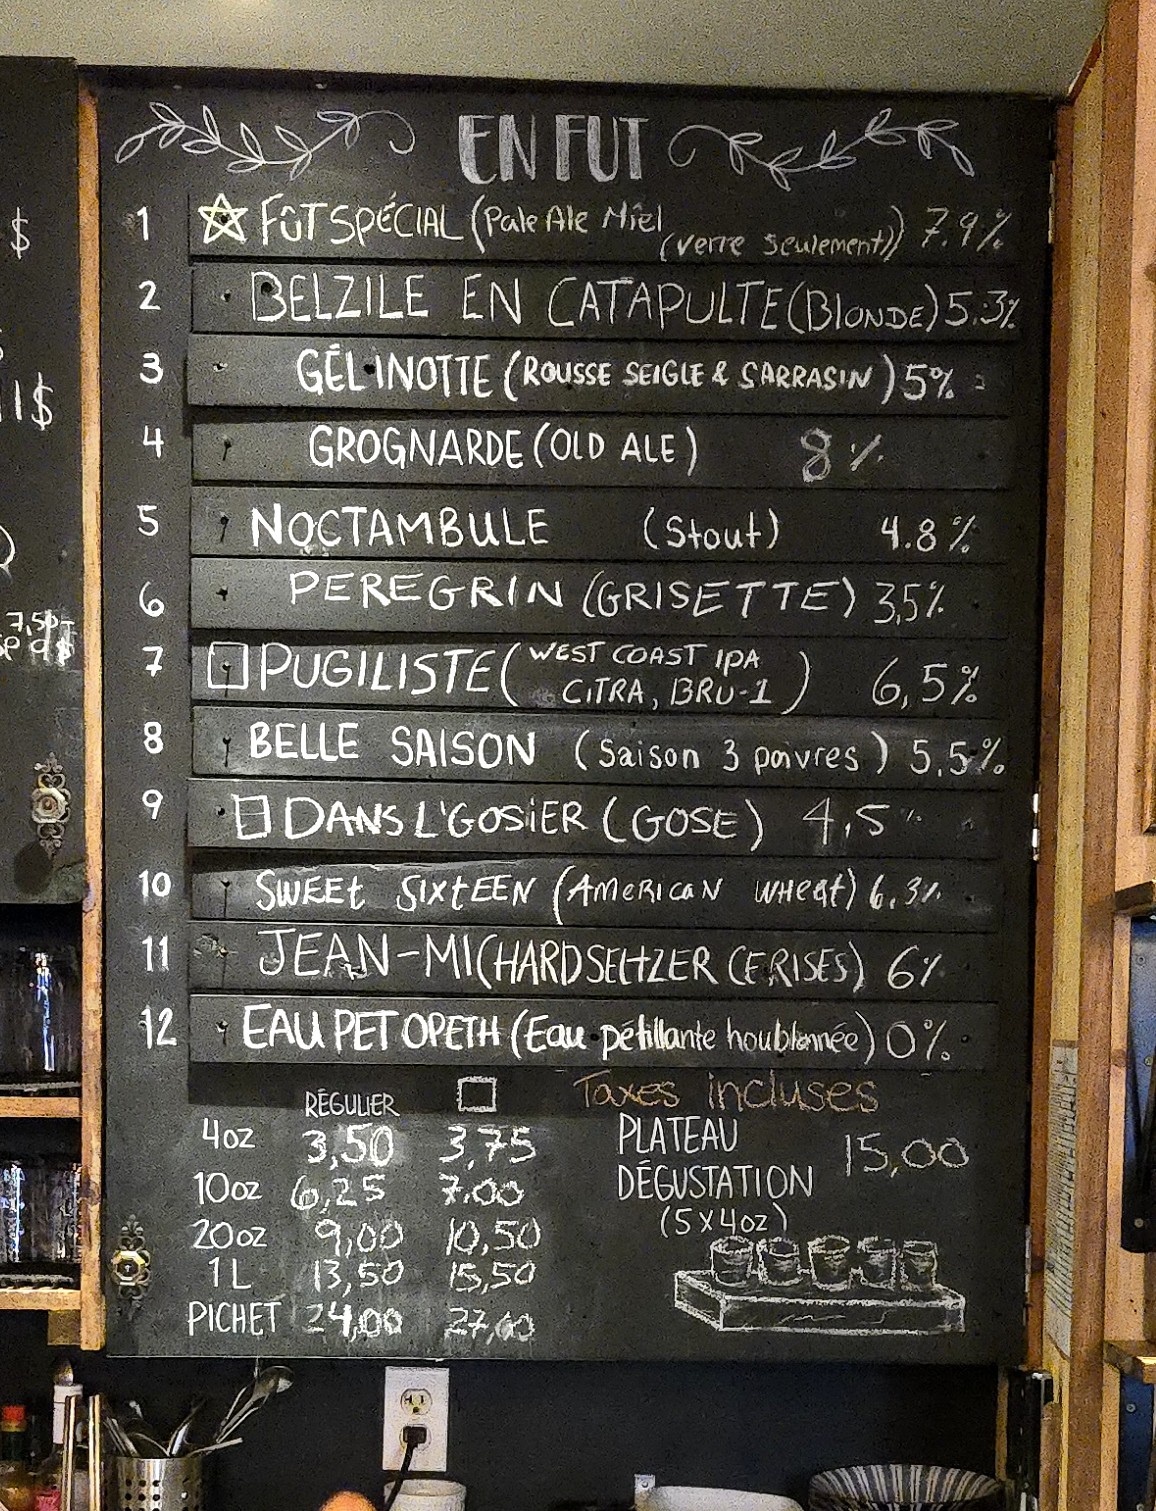 EN FUT
1 FÛT SPÉCIAL (Pale Ale Miel (verre seulement)) 7.9%
2 BELZILE EN CATAPULTE (BLONDE) 5.3%
3 GÉLINOTTE (ROUSSE SEIGLE & SARRASIN) 5%
4 GROGNARDE (OLD ALE) 8%
5 NOCTAMBULE (Stout) 4.8%
6 PEREGRIN (GRISETTE) 3,5%
7 PUGILISTE (WEST COAST IPA
CITRA, BRU-1) 6,5%
8 BELLE SAISON (Saison 3 poivres) 5.5%
9 DANS L'GOSiER (GOSE) 4,5%
10 SWEEt SixtEEN (AMERICAN WHEAt) 6.3%
11 JEAN-MI (HARD SELTZER CERISES) 6%
12 EAU PET OPETH (Eau pétillante houblonnée) 0%
RÉGULIER
4oz 3,50 3,75
10oz 6,25 7.00
20oz 9,00 10,50
1L 13,50 15,50
PICHET 24,00 27,00
Taxes incluses
PLATEAU
DÉGUSTATION 15,00
(5x4oz)
$
11$
7,50